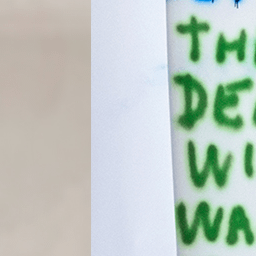 TH
DE
WI
WA